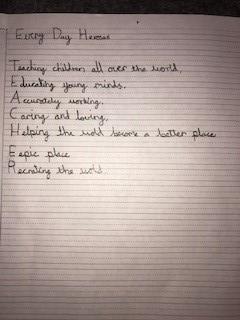 Every Day Heroes
Teaching children all over the world,
Educating young minds.
Accurately working.
Caring and loving,
Helping the wold become a better place
Eepic place
Recrating the world.